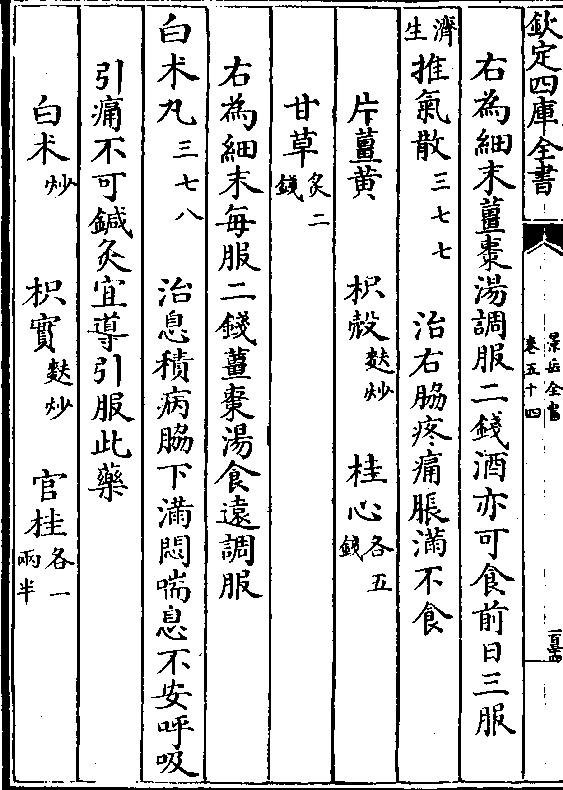 欽定四庫全書
景岳全書
卷五十四
右為細末薑棗湯調服二錢酒亦可食前日三服
濟生推氣散三七七 治右脇疼痛脹滿不食
片薑黃 枳殻麩炒 桂心各五錢
甘草炙二錢
右為細末每服二錢薑棗湯食遠調服
白朮丸三七八 治息積病脇下滿悶喘息不安呼吸
引痛不可鍼灸宜導引服此藥
白朮炒 枳實麩炒 官桂各一兩半